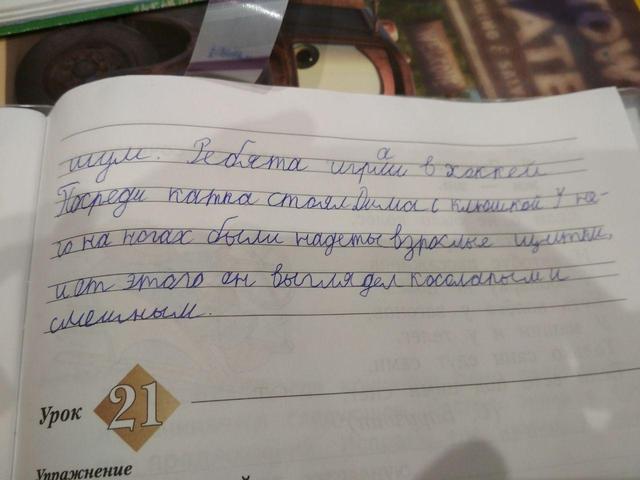 шум. Ребята играли в хоккей
Посреди катка стоял Дима с клюшкой У не-
го на ногах были надеты взрослые щитки,
и от этого он выглядел косолапым и
смешным.
Урок 21
Упражнение